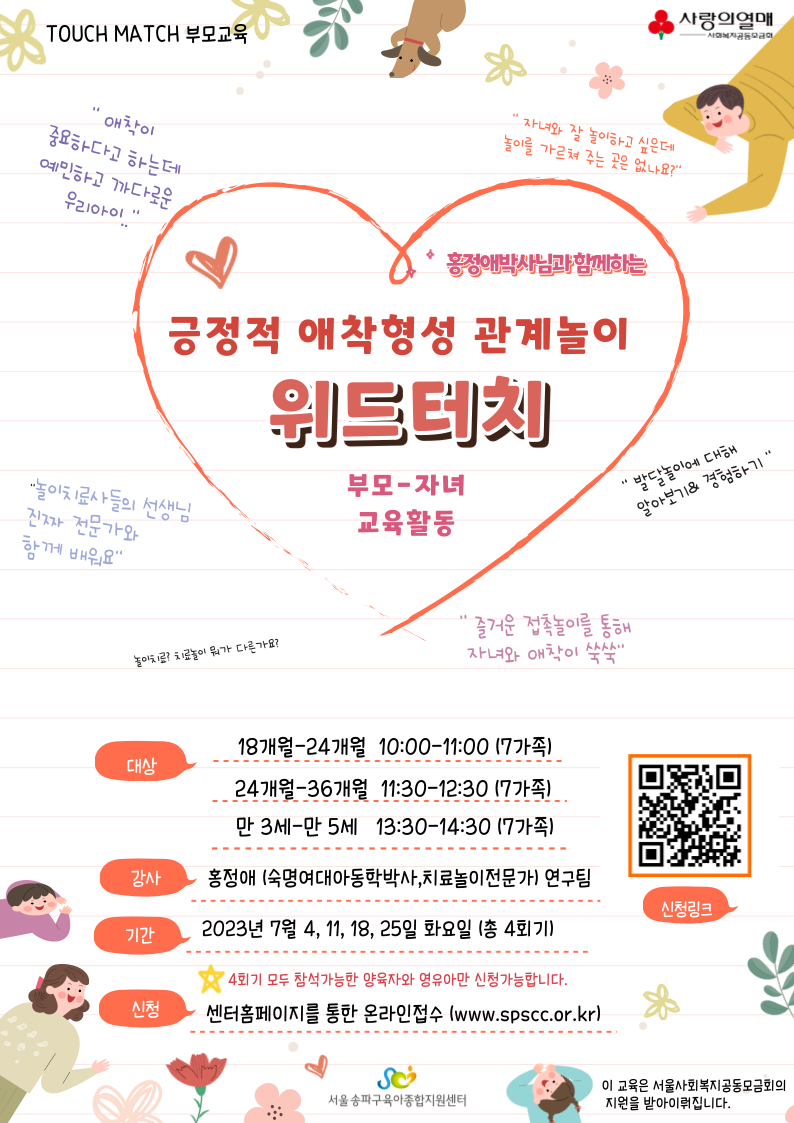 TOUCH MATCH 부모교육
사랑의열매
사회복지공동모금회
" 애착이
중요하다고 하는데
예민하고 까다로운
우리아이.. "
" 자녀와 잘 놀이하고 싶은데
놀이를 가르쳐 주는 곳은 없나요?"
홍정애박사님과 함께하는
긍정적 애착형성 관계놀이
위드터치
부모-자녀
교육활동
" 발달놀이에 대해
알아보기& 경험하기 "
"놀이치료사들의 선생님
진짜 전문가와
함께 배워요"
" 즐거운 접촉놀이를 통해
자녀와 애착이 쑥쑥"
놀이치료? 치료놀이 뭐가 다른가요?
대상
18개월-24개월 10:00-11:00 (7가족)
24개월-36개월 11:30-12:30 (7가족)
만 3세-만 5세 13:30-14:30 (7가족)
강사
홍정애 (숙명여대아동학박사,치료놀이전문가) 연구팀
신청링크
기간
2023년 7월 4, 11, 18, 25일 화요일 (총 4회기)
4회기 모두 참석가능한 양육자와 영유아만 신청가능합니다.
신청
센터홈페이지를 통한 온라인접수 (www.spscc.or.kr)
서울송파구육아종합지원센터
이 교육은 서울사회복지공동모금회의
지원을 받아이뤄집니다.